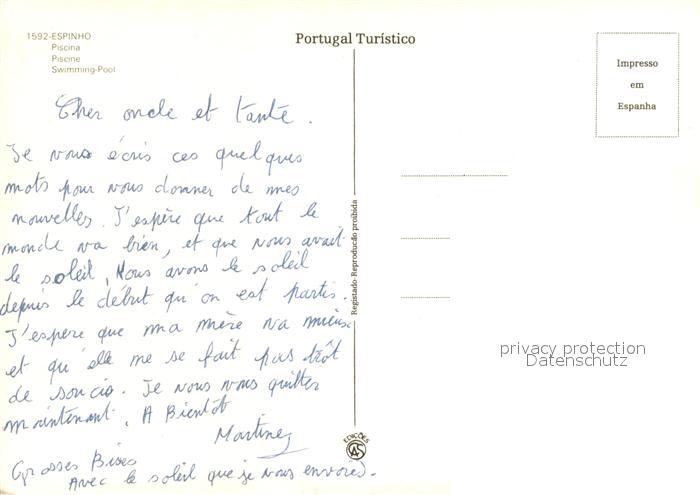 1592-ESPINHO
Piscina
Piscine
Swimming-Pool
Portugal Turístico
Impresso
em
Espanha
Cher oncle et tante.
Je vous écris ces quelques
mots pour vous donner de mes
nouvelles. J'espère que tout le
monde va bien, et que vous avait
le soleil, Nous avons le soleil
depuis le début qu'on est partis.
J'espere que ma mère va mieux
et qu'elle me se fait pas trôt
de soucis. Je vous vous quitter
maintenant. A Bientôt
Martinez
Grosses Bises
Avec le soleil que je vous envoies.
Registado-Reprodução proibida
EDIÇÕES
privacy protection
Datenschutz